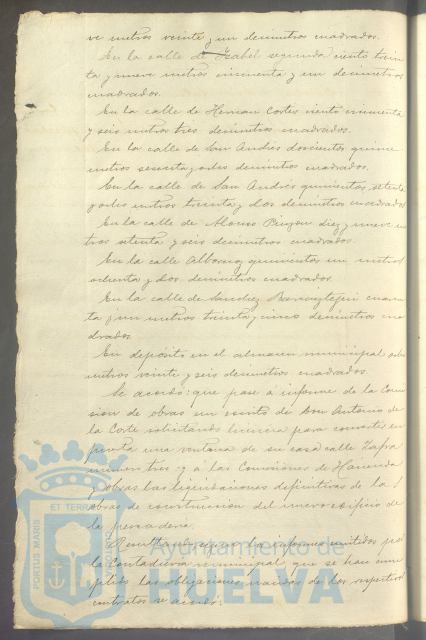 ve metros veinte y un decimetros cuadrados.
En la calle de Isabel segunda ciento trein
ta y nueve metros cincuenta y un decimetros
cuadrados.
En la calle de Hernan Cortés ciento cincuenta
y seis metros tres decimetros cuadrados.
En la calle de San Andrés doscientos quince
metros sesenta y ocho decimetros cuadrados.
En la calle de San Andrés quinientos setenta
y ocho metros treinta y dos decimetros cuadrados
En la calle de Alonso Pinzon diez y nueve me
tros setenta y seis decimetros cuadrados.
En la calle Albornoz quinientos un metros
ochenta y dos decimetros cuadrados.
En la calle de Sanchez Barcaiztegui cuaren
ta y un metros treinta y cinco decimetros cua
drados
En depósito en el almacen municipal ocho
metros veinte y seis decimetros cuadrados.
Se acordó: que pase á informe de la Comi
sion de obras un escrito de Don Antonio de
la Corte solicitando licencia para convertir en
puerta una ventana de su casa calle Zafra
número tres: y á las Comisiones de Hacienda
y obras las liquidaciones definitivas de las
obras de construccion del nuevo edificio de
la pescaderia.
Resultando segun los informes emitidos por
la Contaduria municipal que se han cum
plido las obligaciones de los respectivos
contratos se acordó:
PORTUS MARIS ET TERRAE CUSTODIA
Ayuntamiento de
HUELVA